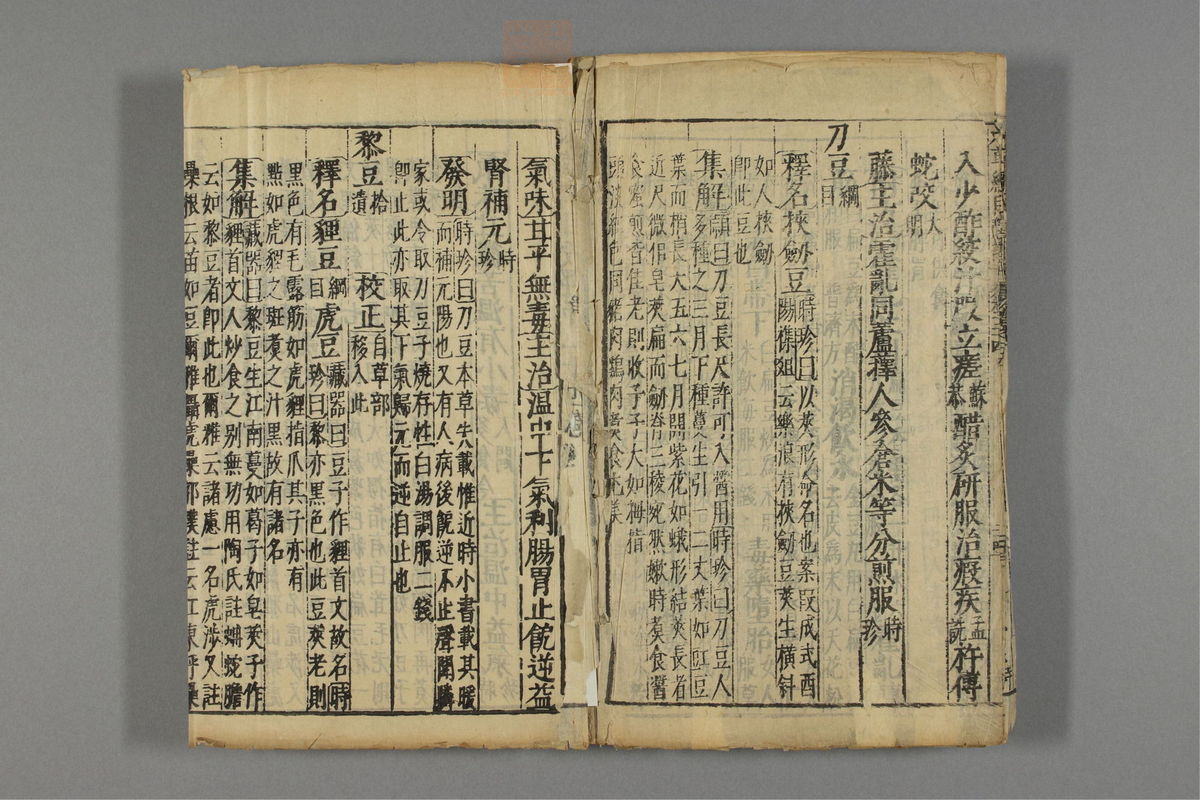 入少醋絞汁服立瘥蘇恭醋炙研服治瘕疾孟詵杵傅
蛇咬大明
藤主治霍亂同蘆籜人參倉米等分煎服時珍
刀豆綱目
釋名挾劍豆時珍曰以莢形命名也案段成式酉
陽雜俎云樂浪有挾劍豆莢生橫斜
如人挾劍
即此豆也
集解穎曰刀豆長尺許可入醬用時珍曰刀豆人
多種之三月下種蔓生引一二丈葉如豇豆
葉而稍長大五六七月開紫花如蛾形結莢長者
近尺微似皂莢扁而劍脊三稜宛然嫩時煮食醬
食蜜煎皆佳老則收子子大如拇指
頭淡紅色同豬肉雞肉煮食尤美
氣味甘平無毒主治溫中下氣利腸胃止呃逆益
腎補元時珍
發明時珍曰刀豆本草失載惟近時小書載其暖
而補元陽也又有人病後呃逆不止聲聞鄰
家或令取刀豆子燒存性白湯調服二錢
即止此亦取其下氣歸元而逆自止也
黎豆拾遺校正自草部移入此
釋名貍豆綱目虎豆藏器曰豆子作貍首文故名時
珍曰黎亦黑色也此豆莢老則
黑色有毛露筋如虎貍指爪其子亦有
點如虎貍之斑煮之汁黑故有諸名
集解藏器曰黎豆生江南蔓如葛子如皂莢子作
貍首文人炒食之別無功用陶氏註蚺蛇膽
云如黎豆者即此也爾雅云諸慮一名虎涉又註
櫐根云苗如豆爾雅櫐虎櫐郭璞註云江東呼櫐